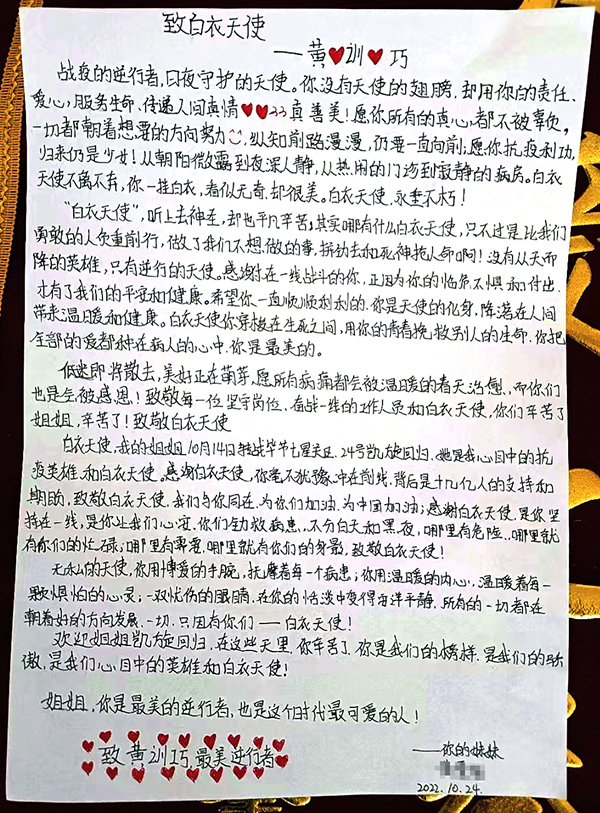 致白衣天使
——黄❤训❤巧
战疫的逆行者,日夜守护的天使。你没有天使的翅膀,却用你的责任、
爱心,服务生命,传递人间真情❤❤真善美!愿你所有的真心,都不被辜负。
一切都朝着想要的方向努力,纵知前路漫漫,仍要一直向前,愿你抗疫利功,
归来仍是少女!从朝阳微露到夜深人静,从热闹的门诊到寂静的病房。白衣
天使不离不弃,你一挂白衣,看似无奇,却很美。白衣天使,永垂不朽!
“白衣天使”,听上去神圣,却也平凡辛苦,其实哪有什么白衣天使,只不过是比我们
勇敢的人负重前行,做了我们不想做的事,拼劲去和死神抢人命啊!没有从天而
降的英雄,只有逆行的天使。感谢在一线战斗的你,正因为你的临危不惧和付出,
才有了我们的平安和健康。希望你一直顺顺利利的。你是天使的化身,降落在人间
带来温暖和健康。白衣天使你穿梭在生死之间,用你的青春挽救别人的生命,你把
全部的爱都种在病人的心中,你是最美的。
即将散去,美好正在萌芽,愿所有病痛都会被温暖的春天治愈,而你们
也是会被感恩!致敬每一位坚守岗位、奋战一线的工作人员和白衣天使,你们辛苦了
姐姐,辛苦了!致敬白衣天使
白衣天使,我的姐姐10月14日驰战毕节七星关区,24号凯旋回归,她是我心目中的抗
疫英雄和白衣天使。感谢白衣天使,你毫不犹豫冲在前线,背后是十几亿人的支持和
期盼,致敬白衣天使,我们与你同在,为你们加油,为中国加油;感谢白衣天使,是你坚
持在一线,是你让我们心安,你们勇救病患,不分白天和黑夜,哪里有危险,哪里就
有你们的忙碌;哪里有需要,哪里就有你们的身影,致敬白衣天使!
无私的天使,你用博爱的手腕,抚摩着每一个病患;你用温暖的内心,温暖着每一
颗惧怕的心灵;一双忧伤的眼睛,在你的恬淡中变得海洋平静,所有的一切都在
朝着好的方向发展,一切,只因有你们——白衣天使!
欢迎姐姐凯旋回归,在这些天里,你辛苦了,你是我们的榜样,是我们的骄
傲,是我们心目中的英雄和白衣天使!
姐姐,你是最美的逆行者,也是这个时代最可爱的人!
致黄训巧,最美逆行者
——你的妹妹
2022.10.24.